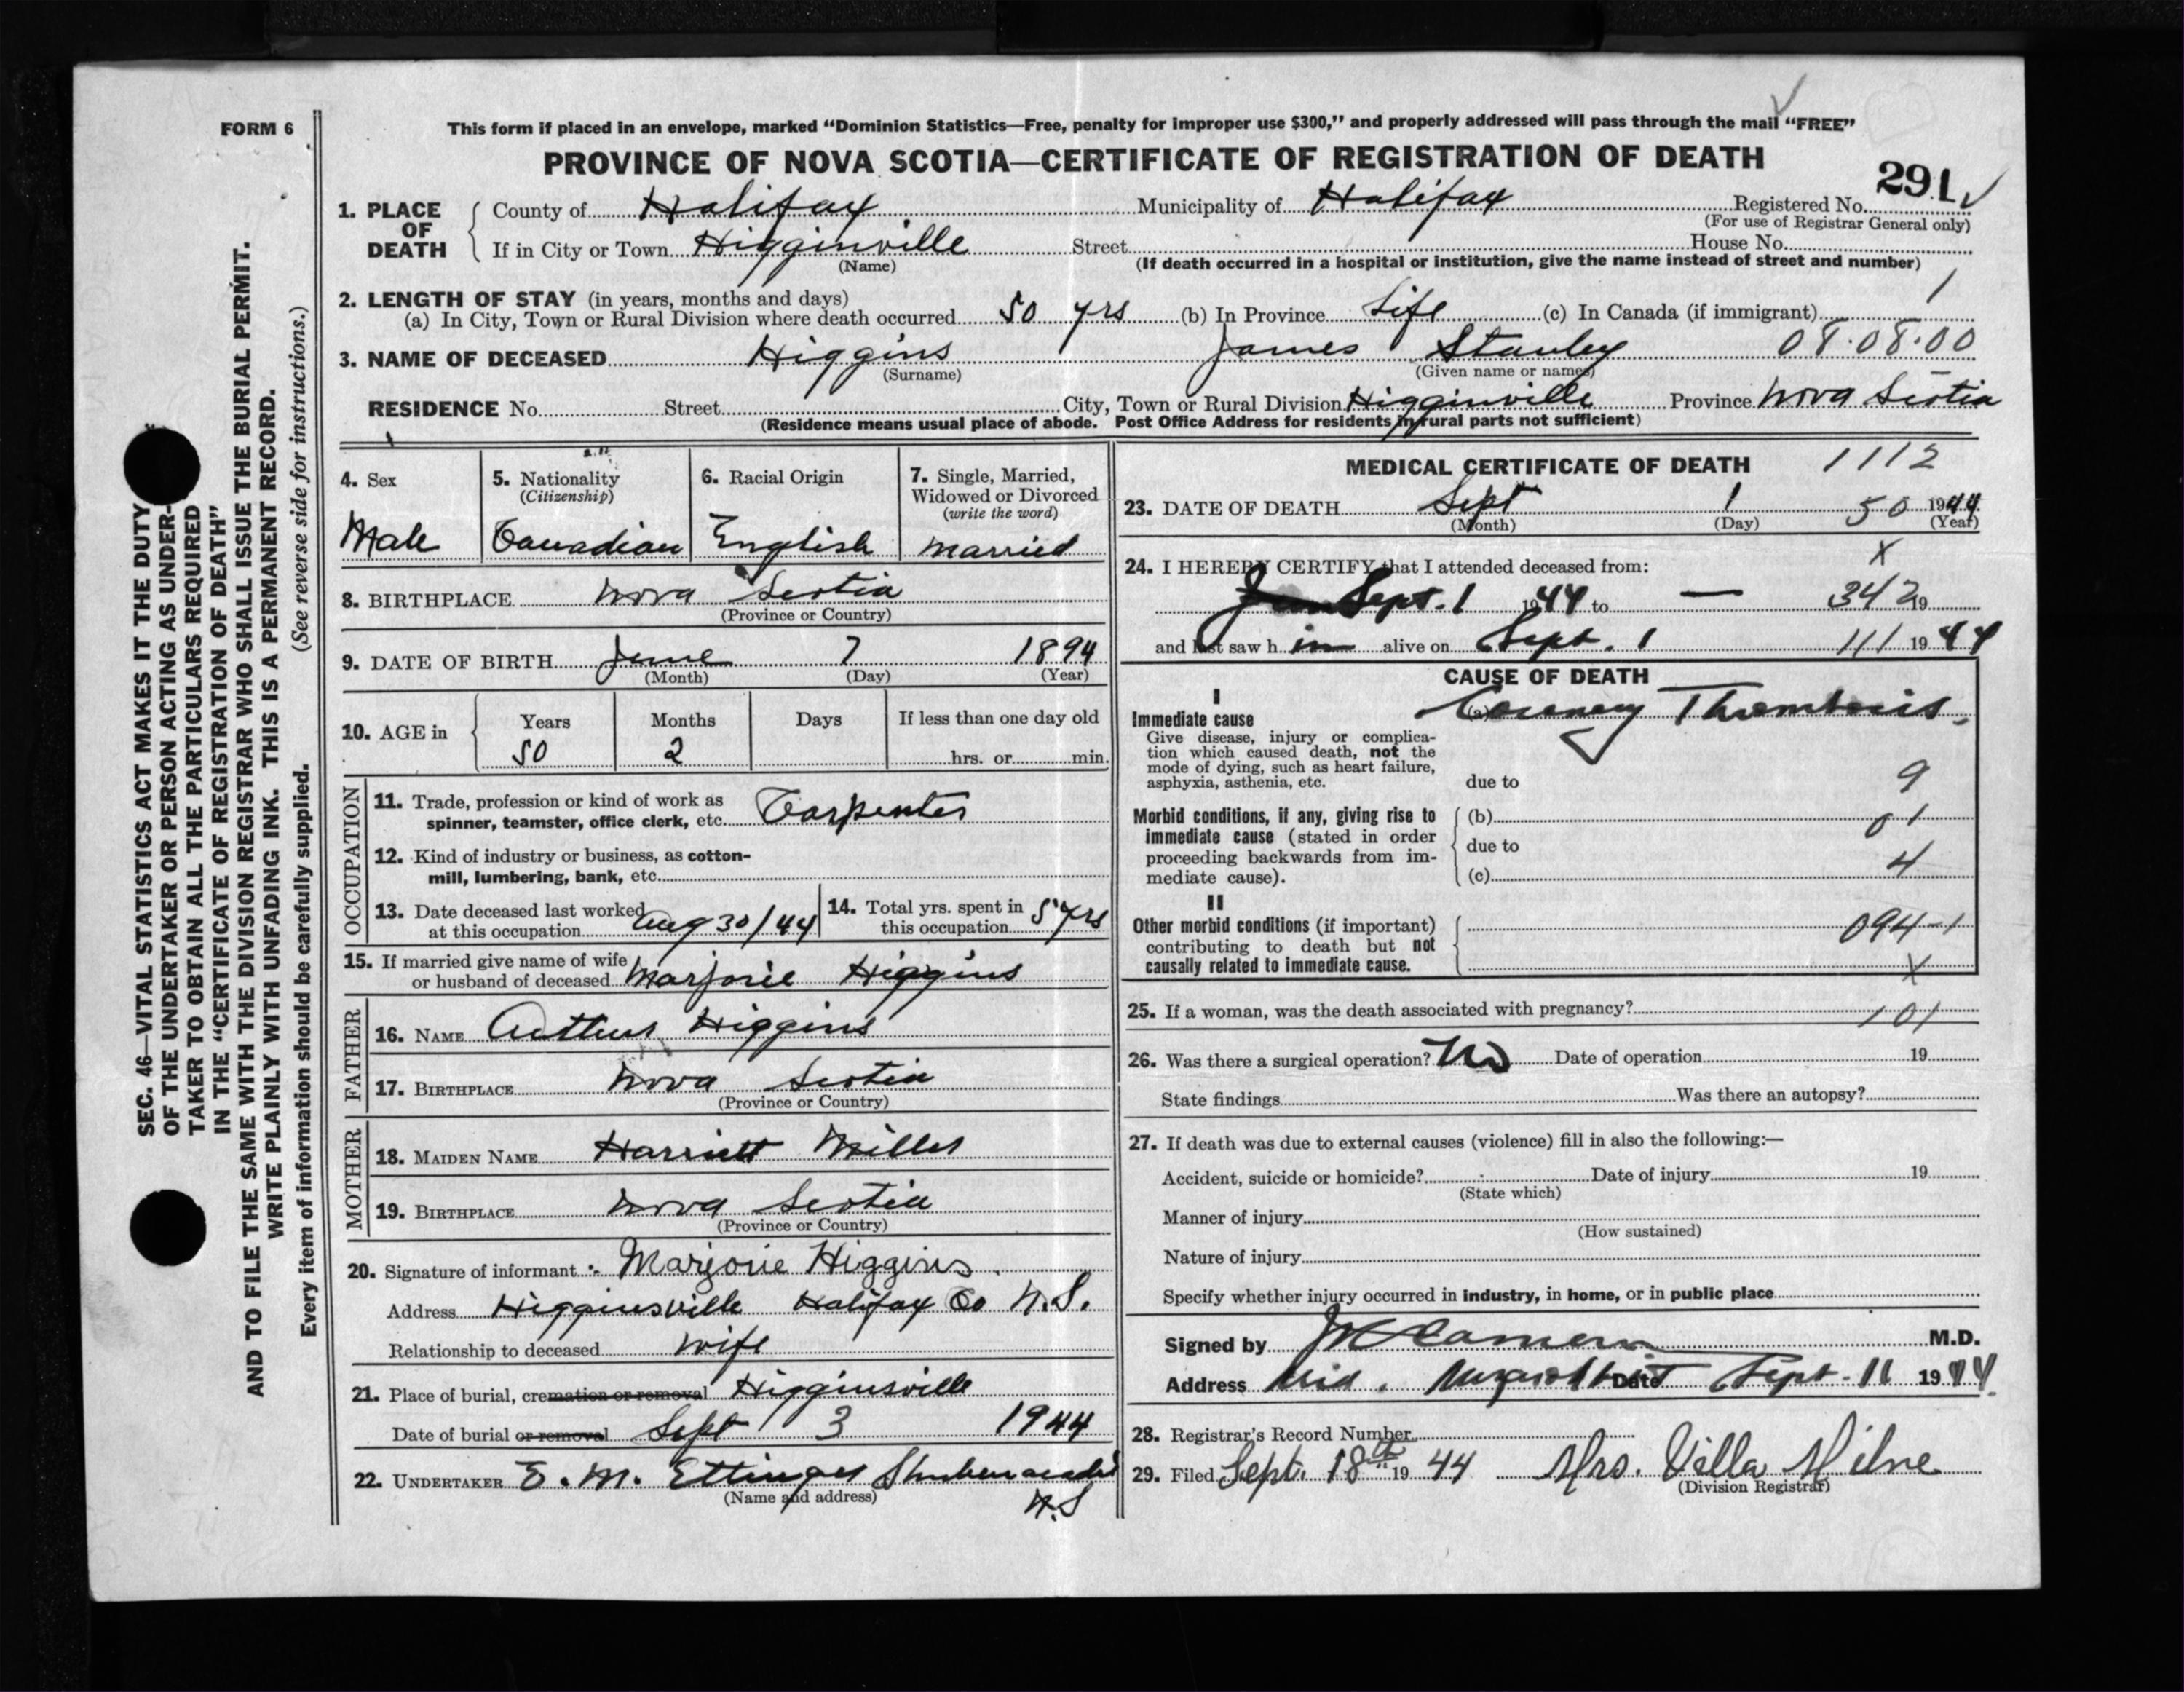 FORM 6
This form if placed in an envelope, marked “Dominion Statistics—Free, penalty for improper use $300,” and properly addressed will pass through the mail “FREE”
PROVINCE OF NOVA SCOTIA—CERTIFICATE OF REGISTRATION OF DEATH
291
1. PLACE OF DEATH
County of Halifax Municipality of Halifax Registered No.
(For use of Registrar General only)
If in City or Town Higginville Street House No.
(Name) (If death occurred in a hospital or institution, give the name instead of street and number)
2. LENGTH OF STAY (in years, months and days)
(a) In City, Town or Rural Division where death occurred 50 yrs (b) In Province Life (c) In Canada (if immigrant)
3. NAME OF DECEASED Higgins James Stanley 08.08.00
(Surname) (Given name or names)
RESIDENCE No. Street City, Town or Rural Division Higginville Province Nova Scotia
(Residence means usual place of abode. Post Office Address for residents in rural parts not sufficient)
4. Sex
Male
5. Nationality
(Citizenship)
Canadian
6. Racial Origin
English
7. Single, Married,
Widowed or Divorced
(write the word)
Married
8. BIRTHPLACE Nova Scotia
(Province or Country)
9. DATE OF BIRTH June 7 1894
(Month) (Day) (Year)
10. AGE in Years Months Days If less than one day old
50 2 hrs. or min.
OCCUPATION
11. Trade, profession or kind of work as
spinner, teamster, office clerk, etc. Carpenter
12. Kind of industry or business, as cotton-
mill, lumbering, bank, etc.
13. Date deceased last worked
at this occupation Aug 30/44
14. Total yrs. spent in
this occupation 5 yrs
15. If married give name of wife
or husband of deceased Marjorie Higgins
FATHER
16. NAME Arthur Higgins
17. BIRTHPLACE Nova Scotia
(Province or Country)
MOTHER
18. MAIDEN NAME Harriett Miller
19. BIRTHPLACE Nova Scotia
(Province or Country)
20. Signature of informant Marjorie Higgins.
Address Higginsville Halifax Co N.S.
Relationship to deceased wife
21. Place of burial, cremation or removal Higginsville
Date of burial or removal Sept 3 1944
22. UNDERTAKER E. M. Ettinger Shubenacadie
(Name and address) N.S
MEDICAL CERTIFICATE OF DEATH 1112
23. DATE OF DEATH Sept 1 50 1944
(Month) (Day) (Year)
24. I HEREBY CERTIFY that I attended deceased from: X
Sept. 1 1944 to — 342 19
and last saw h im alive on Sept. 1 111 1944
CAUSE OF DEATH
I
Immediate cause (a) Coronary Thrombosis.
Give disease, injury or complica-
tion which caused death, not the
mode of dying, such as heart failure,
asphyxia, asthenia, etc. due to 9
Morbid conditions, if any, giving rise to (b) 01
immediate cause (stated in order due to
proceeding backwards from im- 4
mediate cause). (c)
II
Other morbid conditions (if important) 094-1
contributing to death but not
causally related to immediate cause. X
25. If a woman, was the death associated with pregnancy? 101
26. Was there a surgical operation? No Date of operation 19
State findings Was there an autopsy?
27. If death was due to external causes (violence) fill in also the following:—
Accident, suicide or homicide? Date of injury 19
(State which)
Manner of injury
(How sustained)
Nature of injury
Specify whether injury occurred in industry, in home, or in public place
Signed by Cameron M.D.
Address Mid. Musquodoboit Date Sept. 11 1944.
28. Registrar's Record Number
29. Filed Sept. 18th 19 44 Mrs. Villa Milne
(Division Registrar)
SEC. 46—VITAL STATISTICS ACT MAKES IT THE DUTY
OF THE UNDERTAKER OR PERSON ACTING AS UNDER-
TAKER TO OBTAIN ALL THE PARTICULARS REQUIRED
IN THE “CERTIFICATE OF REGISTRATION OF DEATH”
AND TO FILE THE SAME WITH THE DIVISION REGISTRAR WHO SHALL ISSUE THE BURIAL PERMIT.
WRITE PLAINLY WITH UNFADING INK. THIS IS A PERMANENT RECORD.
Every item of information should be carefully supplied. (See reverse side for instructions.)